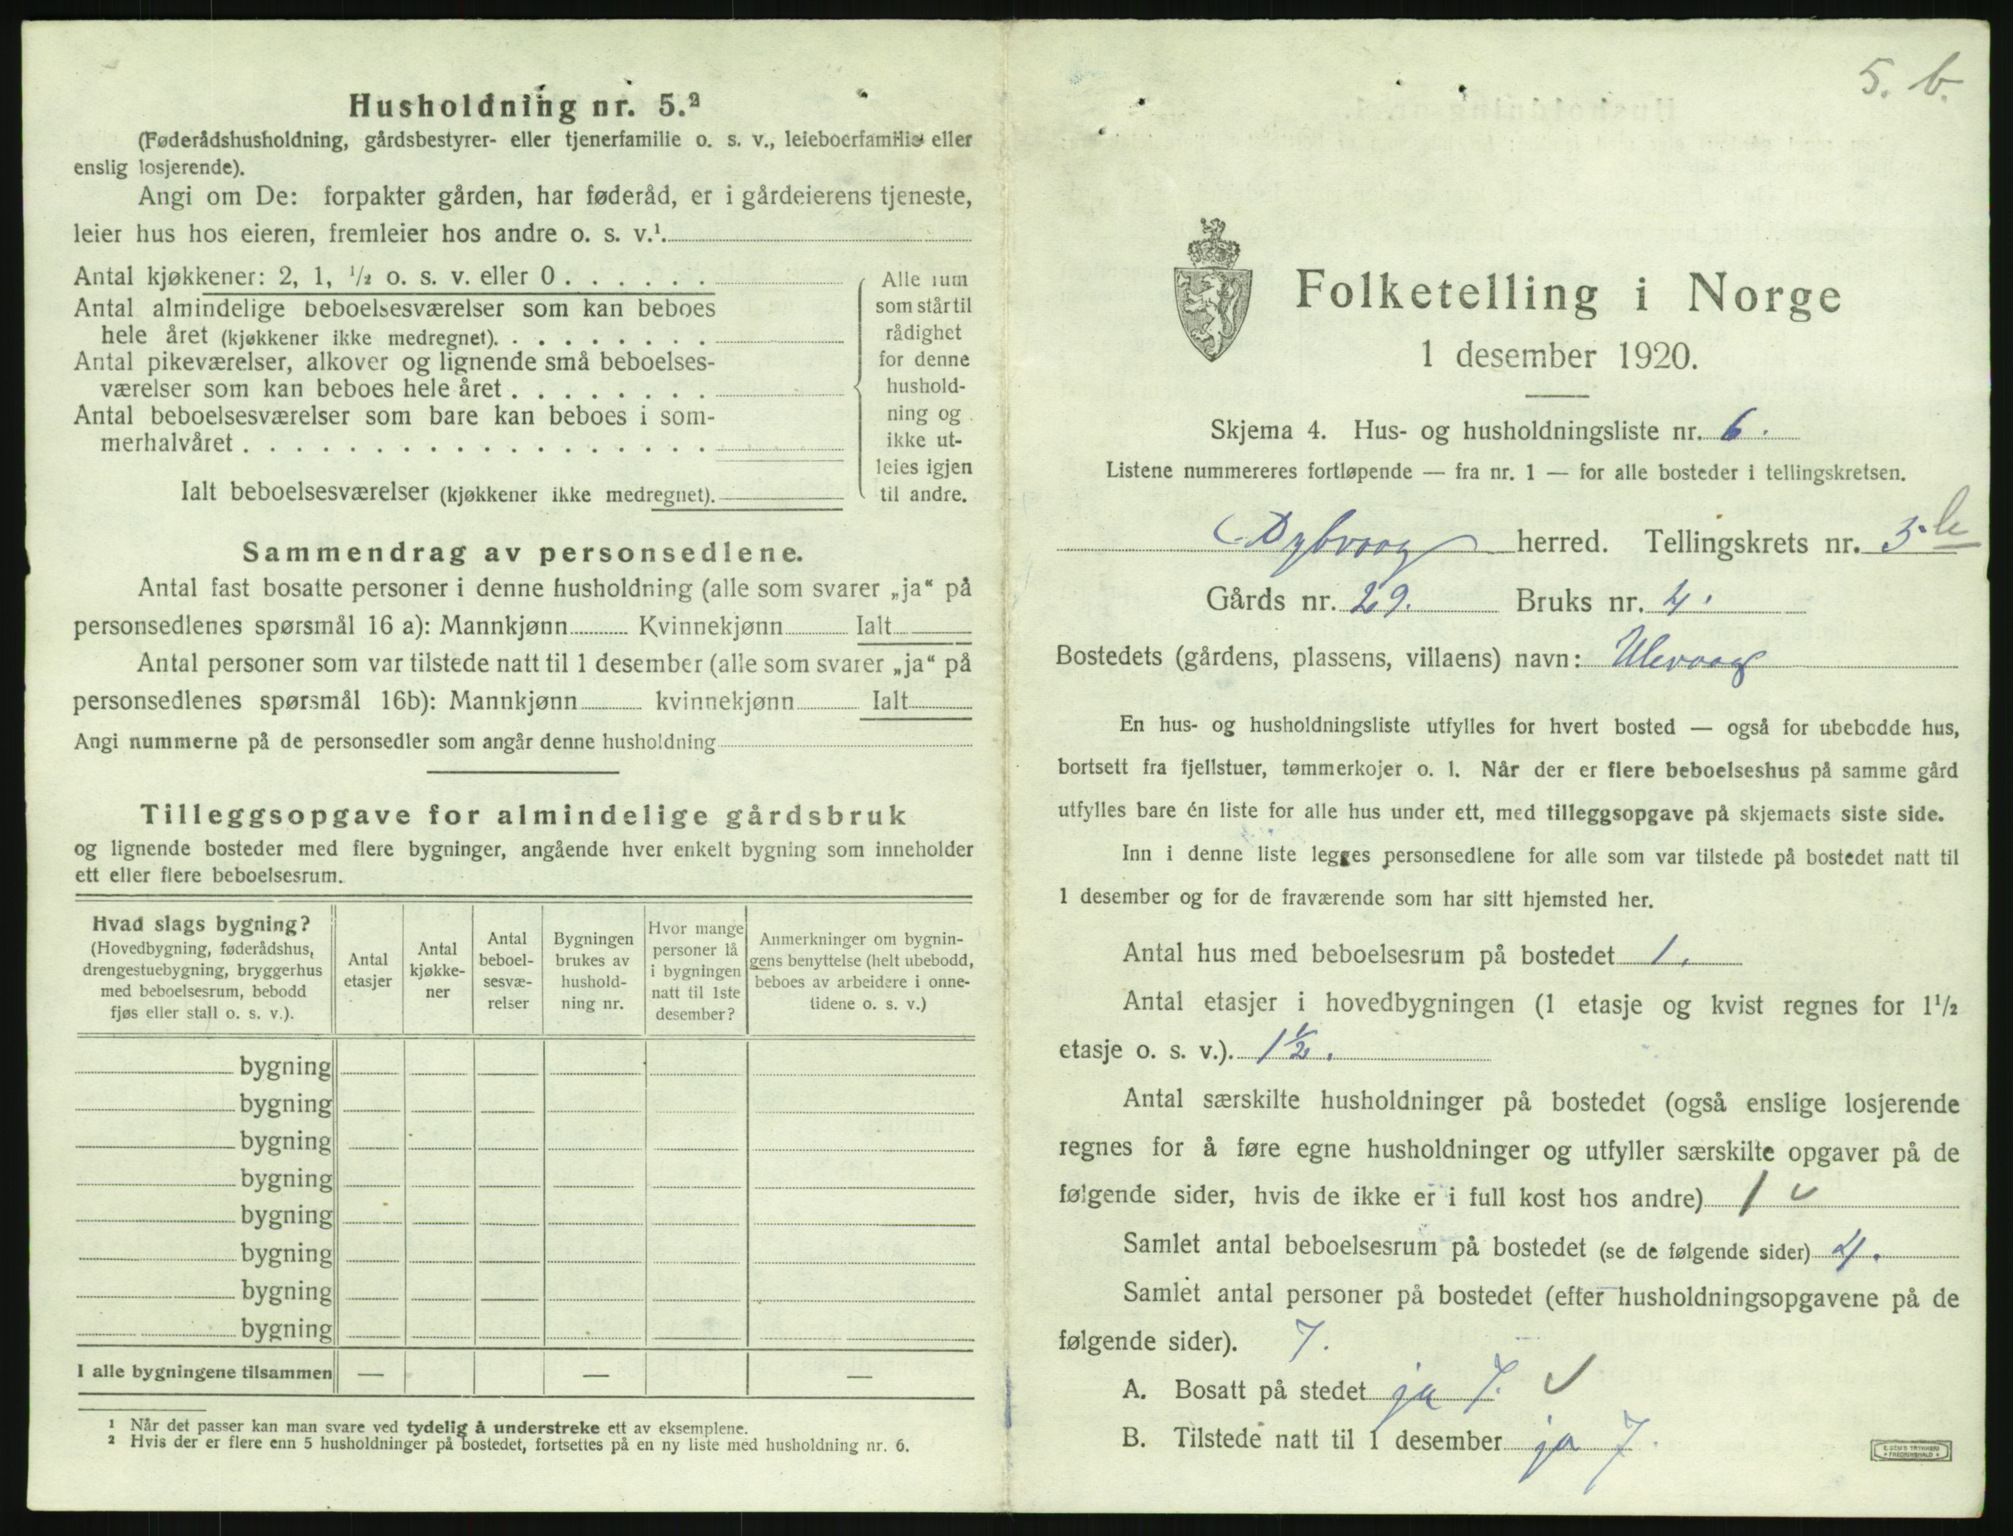 Husholdning nr. 5.²
(Føderådshusholdning, gårdsbestyrer- eller tjenerfamilie o. s. v., leieboerfamilie eller
enslig losjerende).
Angi om De: forpakter gården, har føderåd, er i gårdeierens tjeneste,
leier hus hos eieren, fremleier hos andre o. s. v.¹.
Antal kjøkkener: 2, 1, ½ o. s. v. eller 0 . . . . . .
Antal almindelige beboelsesværelser som kan beboes
hele året (kjøkkener ikke medregnet). . . . . . . . .
Antal pikeværelser, alkover og lignende små beboelses-
værelser som kan beboes hele året . . . . . . . .
Antal beboelsesværelser som bare kan beboes i som-
merhalvåret . . . . . . . . . . . . . . . . . .
Ialt beboelsesværelser (kjøkkener ikke medregnet).
Alle rum
som står til
rådighet
for denne
hushold-
ning og
ikke ut-
leies igjen
til andre.
Sammendrag av personsedlene.
Antal fast bosatte personer i denne husholdning (alle som svarer „ja“ på
personsedlenes spørsmål 16 a): Mannkjønn Kvinnekjønn Ialt
Antal personer som var tilstede natt til 1 desember (alle som svarer „ja“ på
personsedlenes spørsmål 16b): Mannkjønn kvinnekjønn Ialt
Angi nummerne på de personsedler som angår denne husholdning
Tilleggsopgave for almindelige gårdsbruk
og lignende bosteder med flere bygninger, angående hver enkelt bygning som inneholder
ett eller flere beboelsesrum.
Hvad slags bygning?
(Hovedbygning, føderådshus,
drengestuebygning, bryggerhus
med beboelsesrum, bebodd
fjøs eller stall o. s. v.).
Antal
etasjer
Antal
kjøkke-
ner
Antal
beboel-
sesvæ-
relser
Bygningen
brukes av
hushold-
ning nr.
Hvor mange
personer lå
i bygningen
natt til 1ste
desember?
Anmerkninger om bygnin-
gens benyttelse (helt ubebodd,
beboes av arbeidere i onne-
tidene o. s. v.)
bygning
bygning
bygning
bygning
bygning
bygning
bygning
bygning
I alle bygningene tilsammen — — —
¹ Når det passer kan man svare ved tydelig å understreke ett av eksemplene.
² Hvis der er flere enn 5 husholdninger på bostedet, fortsettes på en ny liste med husholdning nr. 6.
5. b.
Folketelling i Norge
1 desember 1920.
Skjema 4. Hus- og husholdningsliste nr. 6.
Listene nummereres fortløpende — fra nr. 1 — for alle bosteder i tellingskretsen.
Dybvaag herred. Tellingskrets nr. 5. b
Gårds nr. 29. Bruks nr. 4.
Bostedets (gårdens, plassens, villaens) navn: Ulevaag
En hus- og husholdningsliste utfylles for hvert bosted — også for ubebodde hus,
bortsett fra fjellstuer, tømmerkojer o. l. Når der er flere beboelseshus på samme gård
utfylles bare én liste for alle hus under ett, med tilleggsopgave på skjemaets siste side.
Inn i denne liste legges personsedlene for alle som var tilstede på bostedet natt til
1 desember og for de fraværende som har sitt hjemsted her.
Antal hus med beboelsesrum på bostedet 1.
Antal etasjer i hovedbygningen (1 etasje og kvist regnes for 1½
etasje o. s. v.). 1½.
Antal særskilte husholdninger på bostedet (også enslige losjerende
regnes for å føre egne husholdninger og utfyller særskilte opgaver på de
følgende sider, hvis de ikke er i full kost hos andre) 1 ✓
Samlet antal beboelsesrum på bostedet (se de følgende sider) 4.
Samlet antal personer på bostedet (efter husholdningsopgavene på de
følgende sider). 7.
A. Bosatt på stedet ja 7. ✓
B. Tilstede natt til 1 desember ja 7.